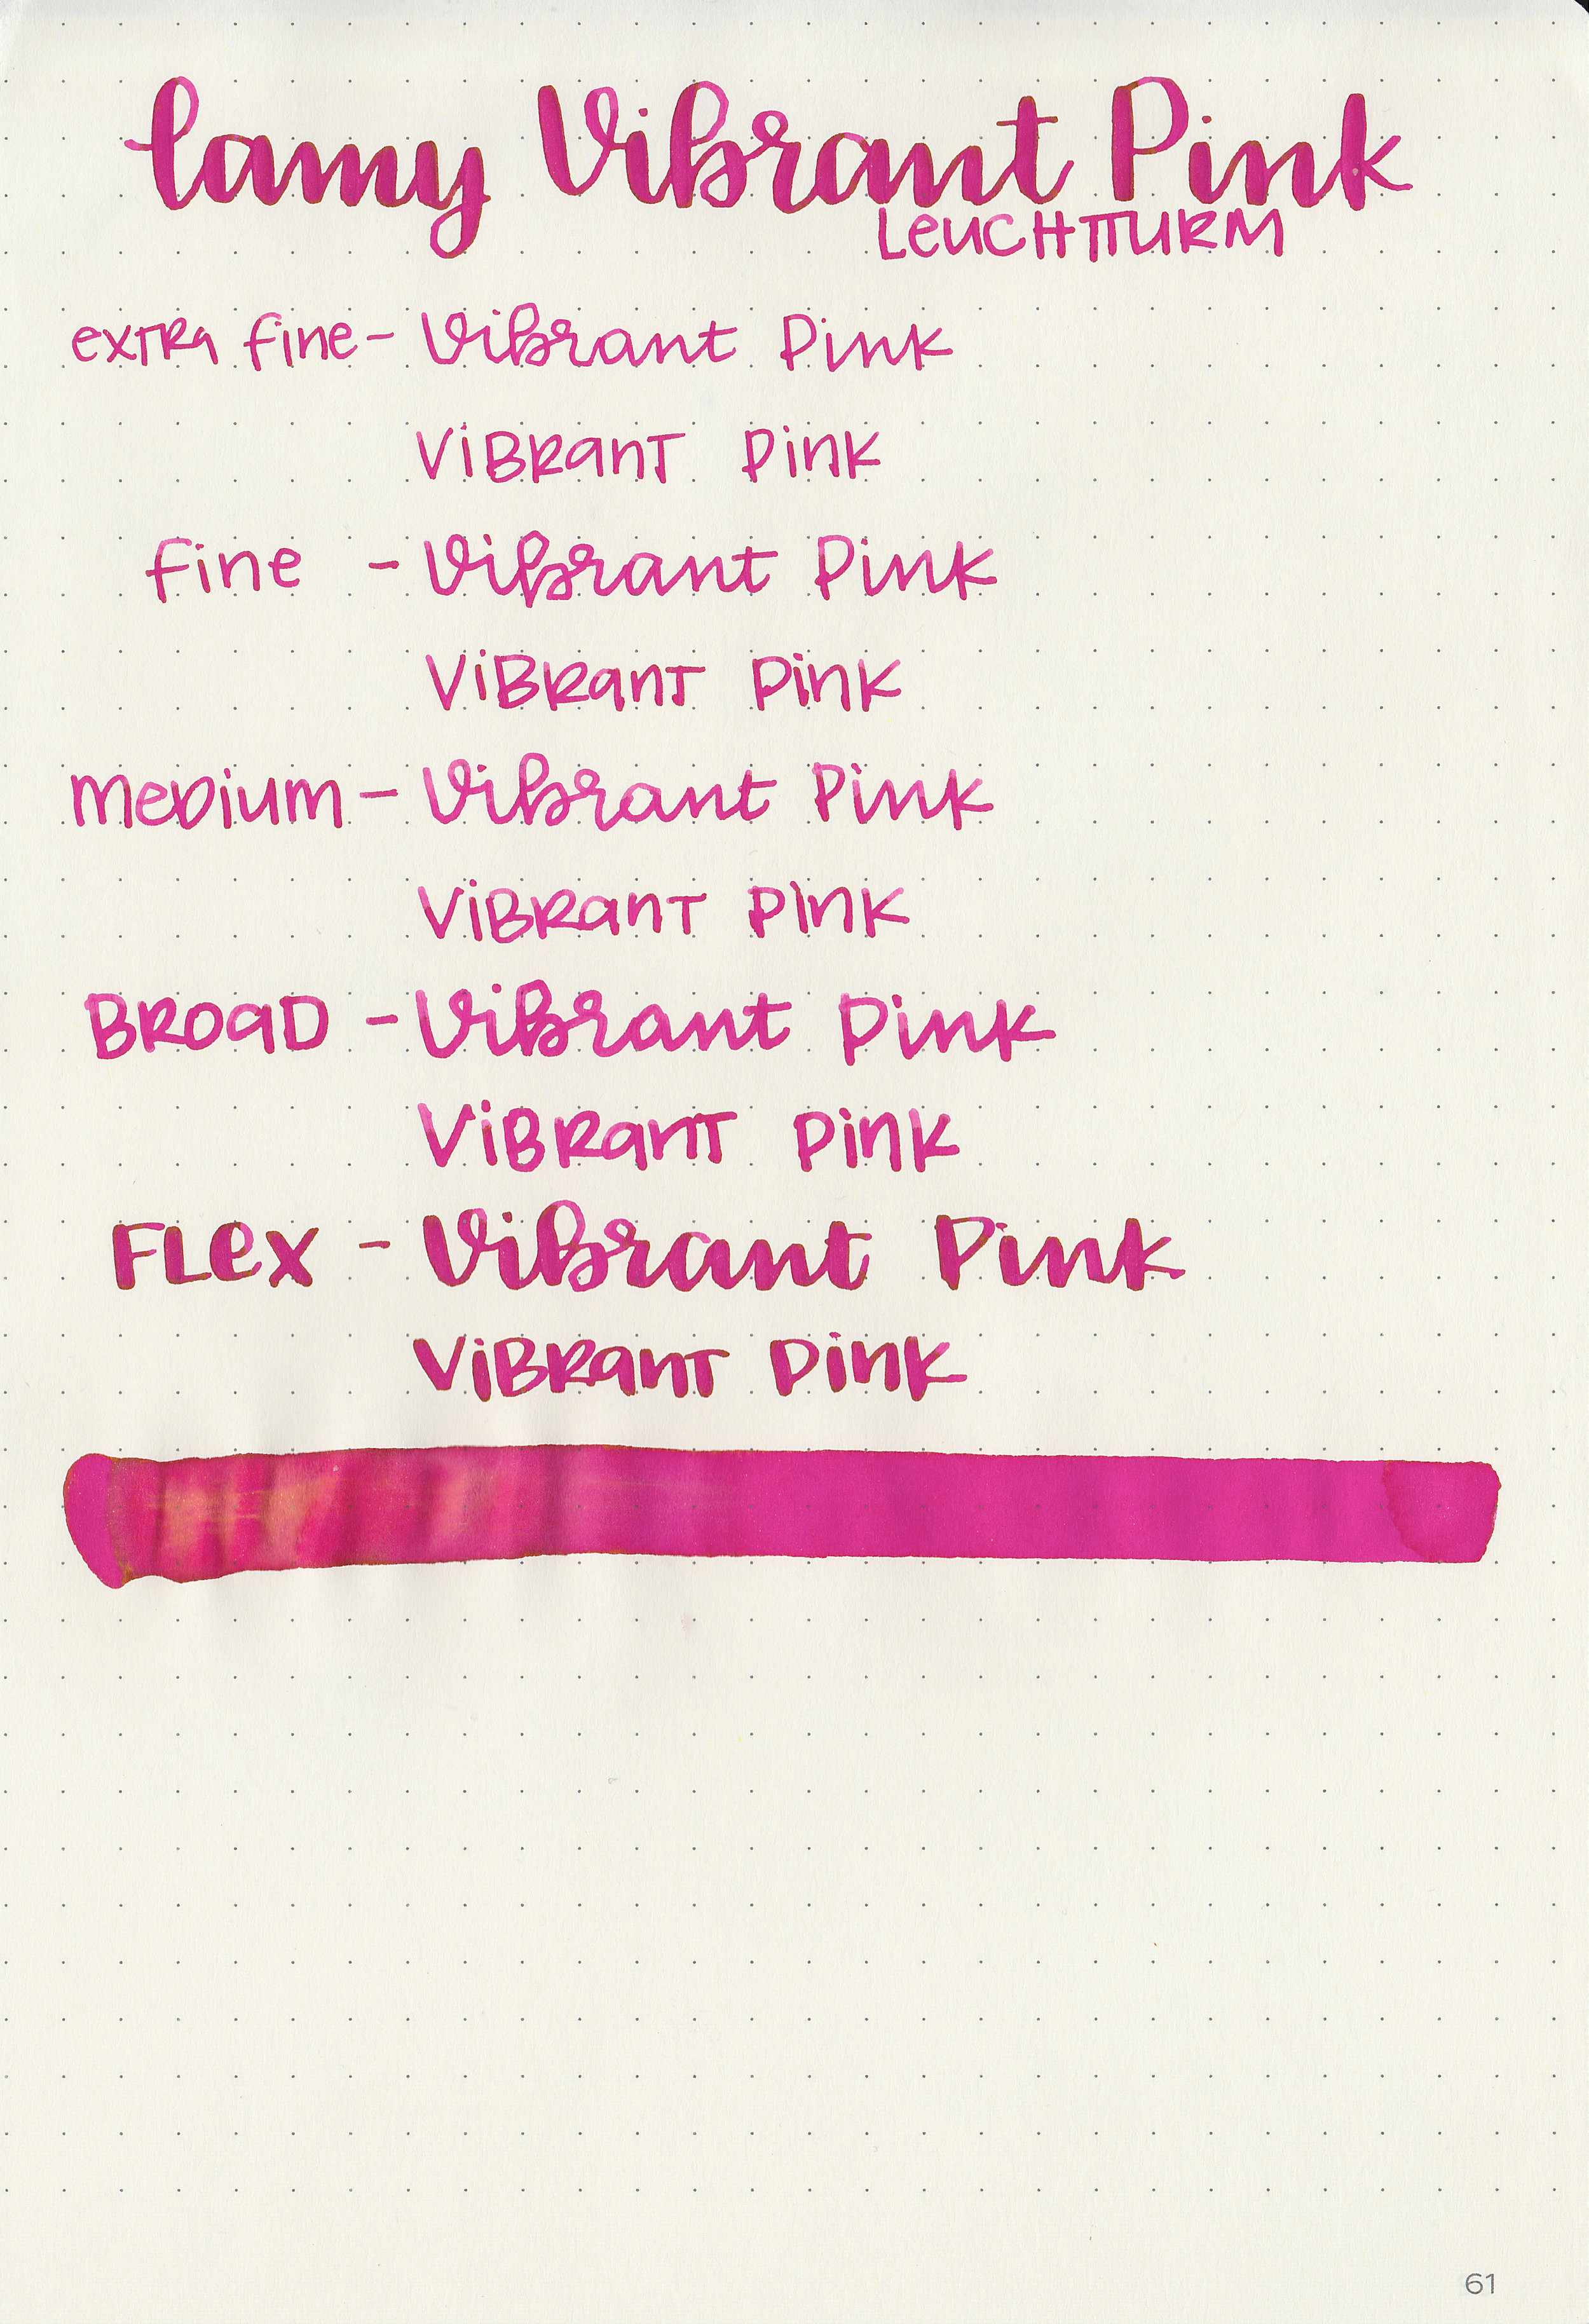 lamy Vibrant Pink
LeuCHTTURM
exTRa fine - Vibrant Pink
ViBRanT Pink
fine - Vibrant Pink
ViBRanT Pink
meDium - Vibrant Pink
ViBRanT Pink
BROaD - Vibrant Pink
ViBRanT Pink
FLex - Vibrant Pink
ViBRanT Pink
61